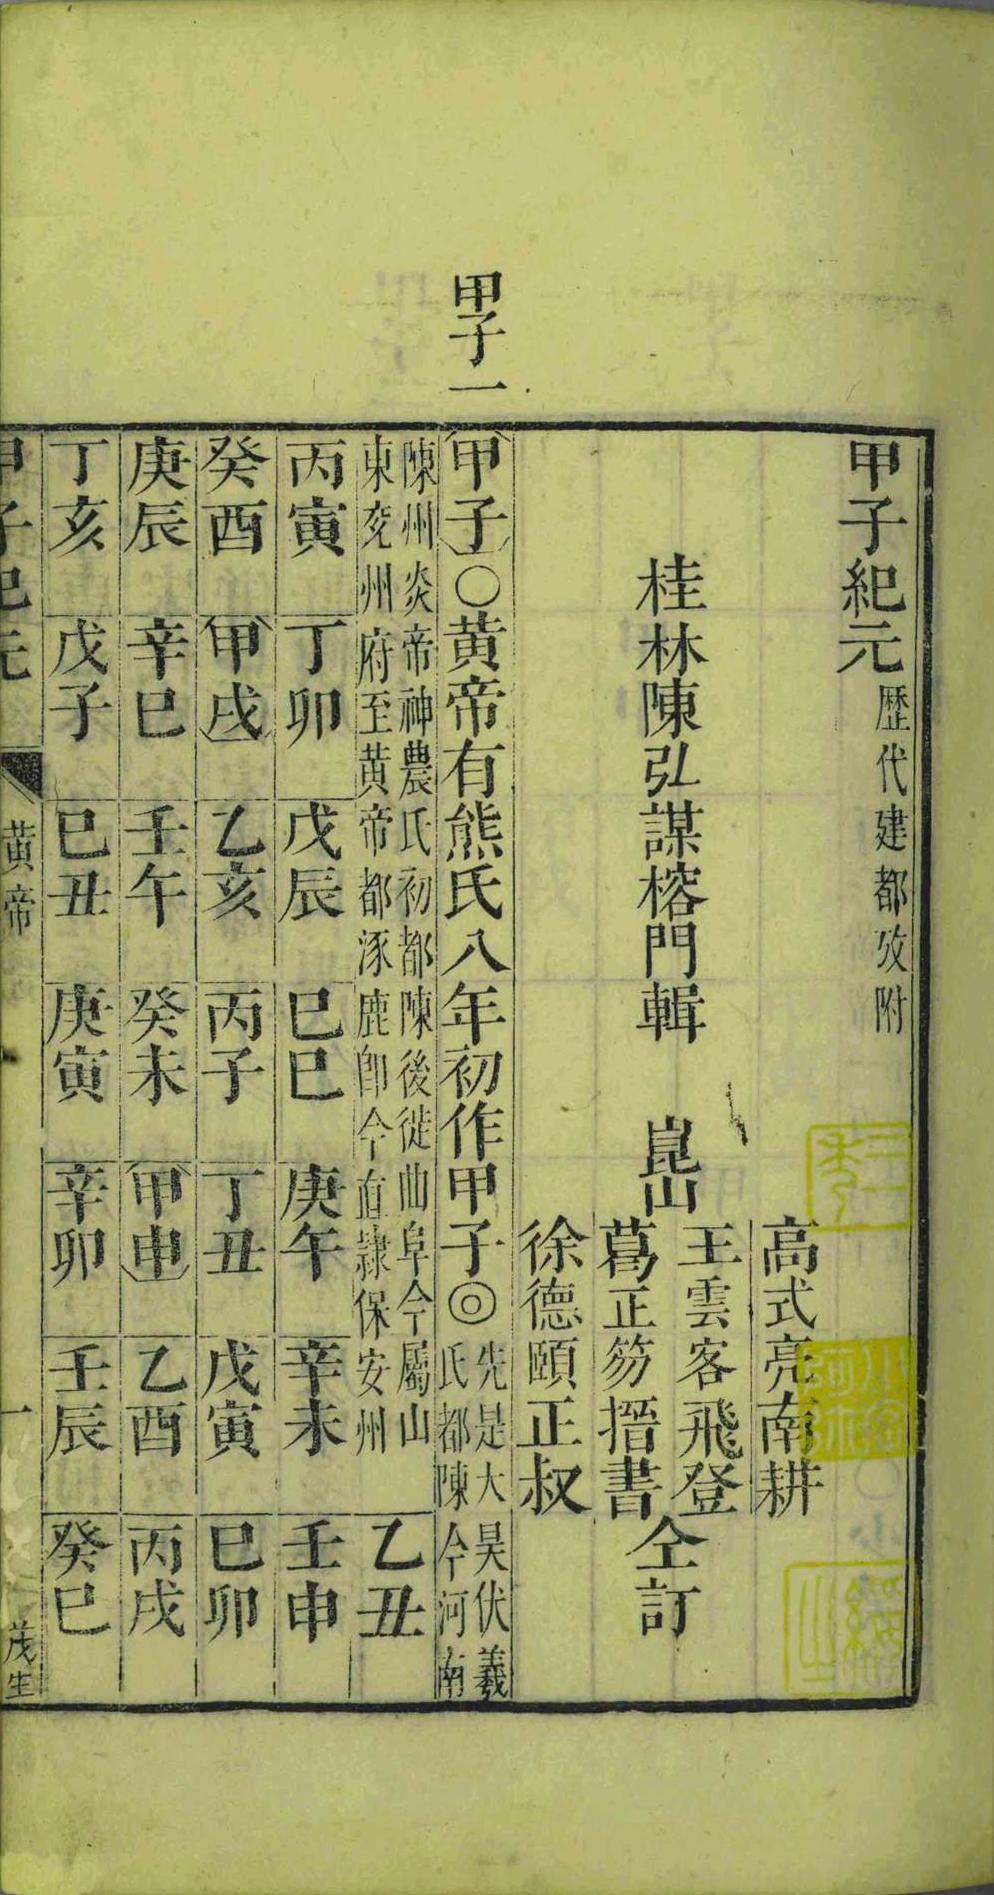 甲子紀元 歷代建都攷附
桂林陳弘謀榕門輯
崑山
高式亮南耕
王雲客飛登
葛正笏搢書
徐德頤正叔
仝訂
甲子一
甲子○黃帝有熊氏八年初作甲子◎先是大昊伏羲
氏都陳今河南
陳州炎帝神農氏初都陳後徙曲阜今屬山
東兗州府至黃帝都涿鹿卽今直隸保安州
乙丑
丙寅 丁卯 戊辰 巳巳 庚午 辛未 壬申
癸酉 甲戌 乙亥 丙子 丁丑 戊寅 巳卯
庚辰 辛巳 壬午 癸未 甲申 乙酉 丙戌
丁亥 戊子 巳丑 庚寅 辛卯 壬辰 癸巳
甲子紀元 黃帝 一 茂生